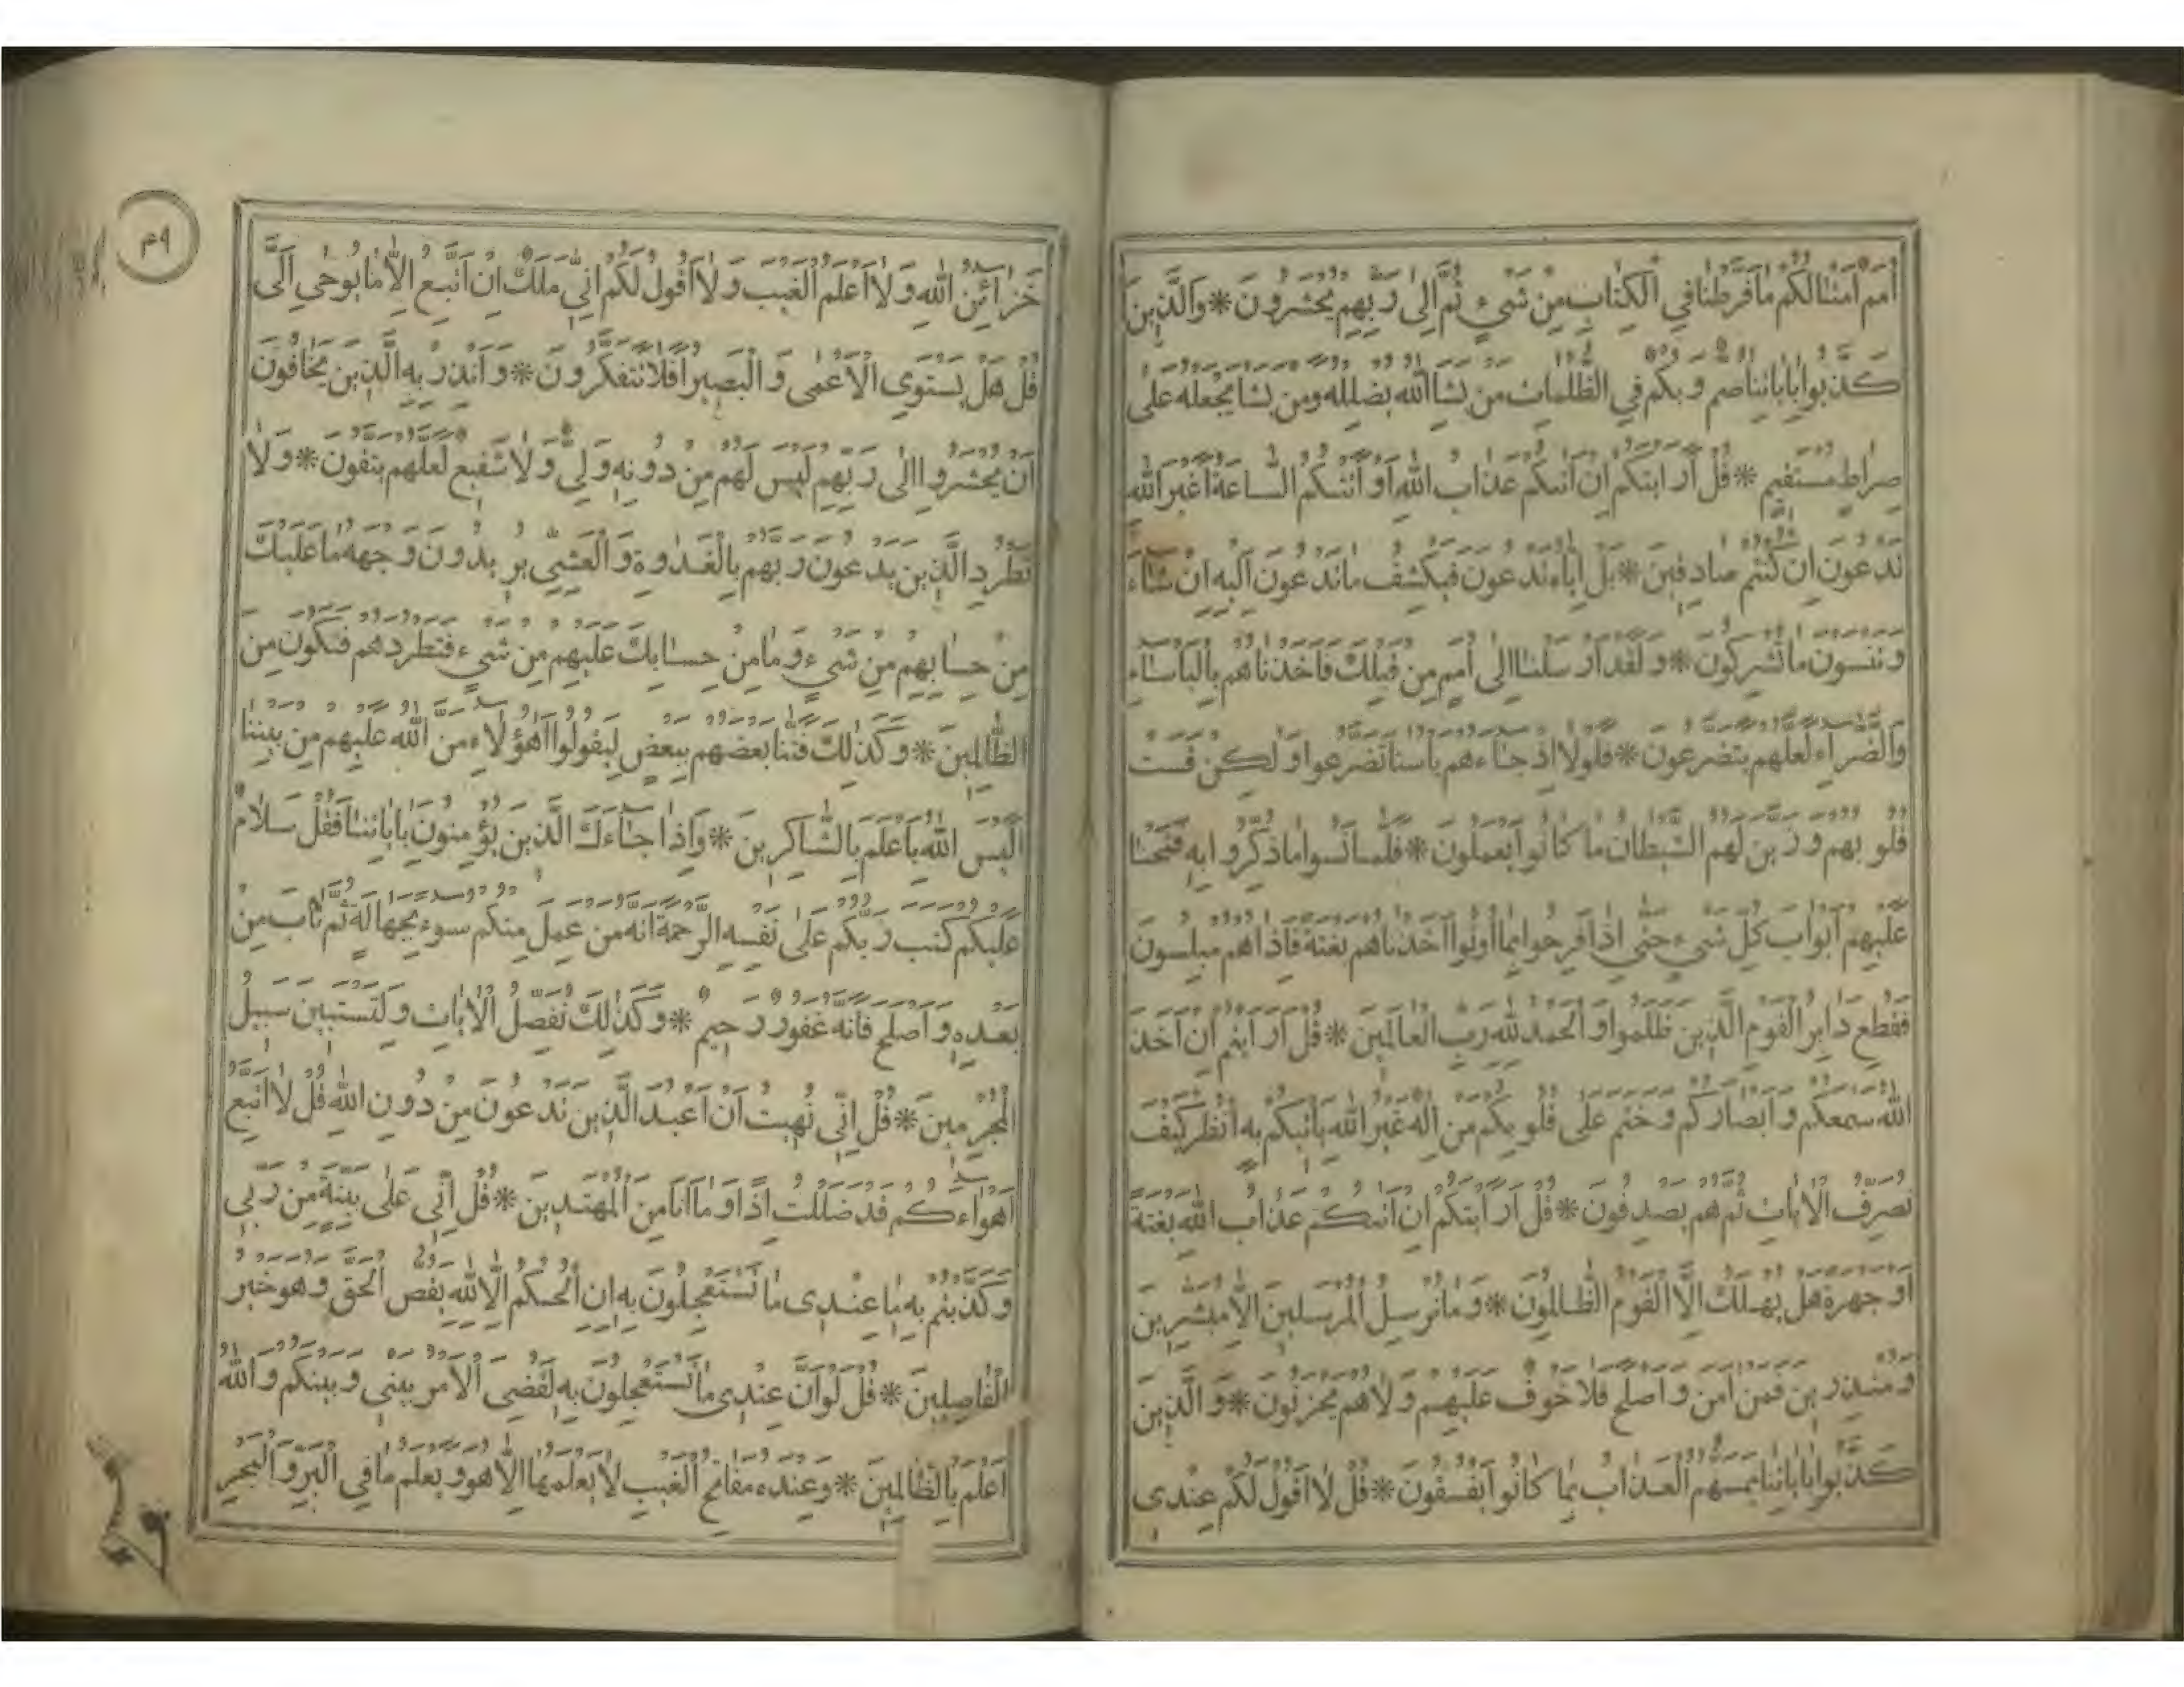 أُمَمٌ أَمْثَالُكُمْ مَا فَرَّطْنَا فِي الْكِتَابِ مِنْ شَيْءٍ ثُمَّ إِلَى رَبِّهِمْ يُحْشَرُونَ * وَالَّذِينَ
كَذَّبُوا بِآيَاتِنَا صُمٌّ وَبُكْمٌ فِي الظُّلُمَاتِ مَنْ يَشَاءِ اللَّهُ يُضْلِلْهُ وَمَنْ يَشَأْ يَجْعَلْهُ عَلَى
صِرَاطٍ مُسْتَقِيمٍ * قُلْ أَرَأَيْتَكُمْ إِنْ أَتَاكُمْ عَذَابُ اللَّهِ أَوْ أَتَتْكُمُ السَّاعَةُ أَغَيْرَ اللَّهِ
تَدْعُونَ إِنْ كُنْتُمْ صَادِقِينَ * بَلْ إِيَّاهُ تَدْعُونَ فَيَكْشِفُ مَا تَدْعُونَ إِلَيْهِ إِنْ شَاءَ
وَتَنْسَوْنَ مَا تُشْرِكُونَ * وَلَقَدْ أَرْسَلْنَا إِلَى أُمَمٍ مِنْ قَبْلِكَ فَأَخَذْنَاهُمْ بِالْبَأْسَاءِ
وَالضَّرَّاءِ لَعَلَّهُمْ يَتَضَرَّعُونَ * فَلَوْلَا إِذْ جَاءَهُمْ بَأْسُنَا تَضَرَّعُوا وَلَكِنْ قَسَتْ
قُلُوبُهُمْ وَزَيَّنَ لَهُمُ الشَّيْطَانُ مَا كَانُوا يَعْمَلُونَ * فَلَمَّا نَسُوا مَا ذُكِّرُوا بِهِ فَتَحْنَا
عَلَيْهِمْ أَبْوَابَ كُلِّ شَيْءٍ حَتَّى إِذَا فَرِحُوا بِمَا أُوتُوا أَخَذْنَاهُمْ بَغْتَةً فَإِذَا هُمْ مُبْلِسُونَ
فَقُطِعَ دَابِرُ الْقَوْمِ الَّذِينَ ظَلَمُوا وَالْحَمْدُ لِلَّهِ رَبِّ الْعَالَمِينَ * قُلْ أَرَأَيْتُمْ إِنْ أَخَذَ
اللَّهُ سَمْعَكُمْ وَأَبْصَارَكُمْ وَخَتَمَ عَلَى قُلُوبِكُمْ مَنْ إِلَهٌ غَيْرُ اللَّهِ يَأْتِيكُمْ بِهِ انْظُرْ كَيْفَ
نُصَرِّفُ الْآيَاتِ ثُمَّ هُمْ يَصْدِفُونَ * قُلْ أَرَأَيْتَكُمْ إِنْ أَتَاكُمْ عَذَابُ اللَّهِ بَغْتَةً
أَوْ جَهْرَةً هَلْ يُهْلَكُ إِلَّا الْقَوْمُ الظَّالِمُونَ * وَمَا نُرْسِلُ الْمُرْسَلِينَ إِلَّا مُبَشِّرِينَ
وَمُنْذِرِينَ فَمَنْ آمَنَ وَأَصْلَحَ فَلَا خَوْفٌ عَلَيْهِمْ وَلَا هُمْ يَحْزَنُونَ * وَالَّذِينَ
كَذَّبُوا بِآيَاتِنَا يَمَسُّهُمُ الْعَذَابُ بِمَا كَانُوا يَفْسُقُونَ * قُلْ لَا أَقُولُ لَكُمْ عِنْدِي
خَزَائِنُ اللَّهِ وَلَا أَعْلَمُ الْغَيْبَ وَلَا أَقُولُ لَكُمْ إِنِّي مَلَكٌ إِنْ أَتَّبِعُ إِلَّا مَا يُوحَى إِلَيَّ
قُلْ هَلْ يَسْتَوِي الْأَعْمَى وَالْبَصِيرُ أَفَلَا تَتَفَكَّرُونَ * وَأَنْذِرْ بِهِ الَّذِينَ يَخَافُونَ
أَنْ يُحْشَرُوا إِلَى رَبِّهِمْ لَيْسَ لَهُمْ مِنْ دُونِهِ وَلِيٌّ وَلَا شَفِيعٌ لَعَلَّهُمْ يَتَّقُونَ * وَلَا
تَطْرُدِ الَّذِينَ يَدْعُونَ رَبَّهُمْ بِالْغَدٰوةِ وَالْعَشِيِّ يُرِيدُونَ وَجْهَهُ مَا عَلَيْكَ
مِنْ حِسَابِهِمْ مِنْ شَيْءٍ وَمَا مِنْ حِسَابِكَ عَلَيْهِمْ مِنْ شَيْءٍ فَتَطْرُدَهُمْ فَتَكُونَ مِنَ
الظَّالِمِينَ * وَكَذَلِكَ فَتَنَّا بَعْضَهُمْ بِبَعْضٍ لِيَقُولُوا أَهَؤُلَاءِ مَنَّ اللَّهُ عَلَيْهِمْ مِنْ بَيْنِنَا
أَلَيْسَ اللَّهُ بِأَعْلَمَ بِالشَّاكِرِينَ * وَإِذَا جَاءَكَ الَّذِينَ يُؤْمِنُونَ بِآيَاتِنَا فَقُلْ سَلَامٌ
عَلَيْكُمْ كَتَبَ رَبُّكُمْ عَلَى نَفْسِهِ الرَّحْمَةَ أَنَّهُ مَنْ عَمِلَ مِنْكُمْ سُوءً بِجَهَالَةٍ ثُمَّ تَابَ مِنْ
بَعْدِهِ وَأَصْلَحَ فَأَنَّهُ غَفُورٌ رَحِيمٌ * وَكَذَلِكَ نُفَصِّلُ الْآيَاتِ وَلِتَسْتَبِينَ سَبِيلُ
الْمُجْرِمِينَ * قُلْ إِنِّي نُهِيتُ أَنْ أَعْبُدَ الَّذِينَ تَدْعُونَ مِنْ دُونِ اللَّهِ قُلْ لَا أَتَّبِعُ
أَهْوَاءَكُمْ قَدْ ضَلَلْتُ إِذًا وَمَا أَنَا مِنَ الْمُهْتَدِينَ * قُلْ إِنِّي عَلَى بَيِّنَةٍ مِنْ رَبِّي
وَكَذَّبْتُمْ بِهِ مَا عِنْدِي مَا تَسْتَعْجِلُونَ بِهِ إِنِ الْحُكْمُ إِلَّا لِلَّهِ يَقُصُّ الْحَقَّ وَهُوَ خَيْرُ
الْفَاصِلِينَ * قُلْ لَوْ أَنَّ عِنْدِي مَا تَسْتَعْجِلُونَ بِهِ لَقُضِيَ الْأَمْرُ بَيْنِي وَبَيْنَكُمْ وَاللَّهُ
أَعْلَمُ بِالظَّالِمِينَ * وَعِنْدَهُ مَفَاتِحُ الْغَيْبِ لَا يَعْلَمُهَا إِلَّا هُوَ وَيَعْلَمُ مَا فِي الْبَرِّ وَالْبَحْرِ